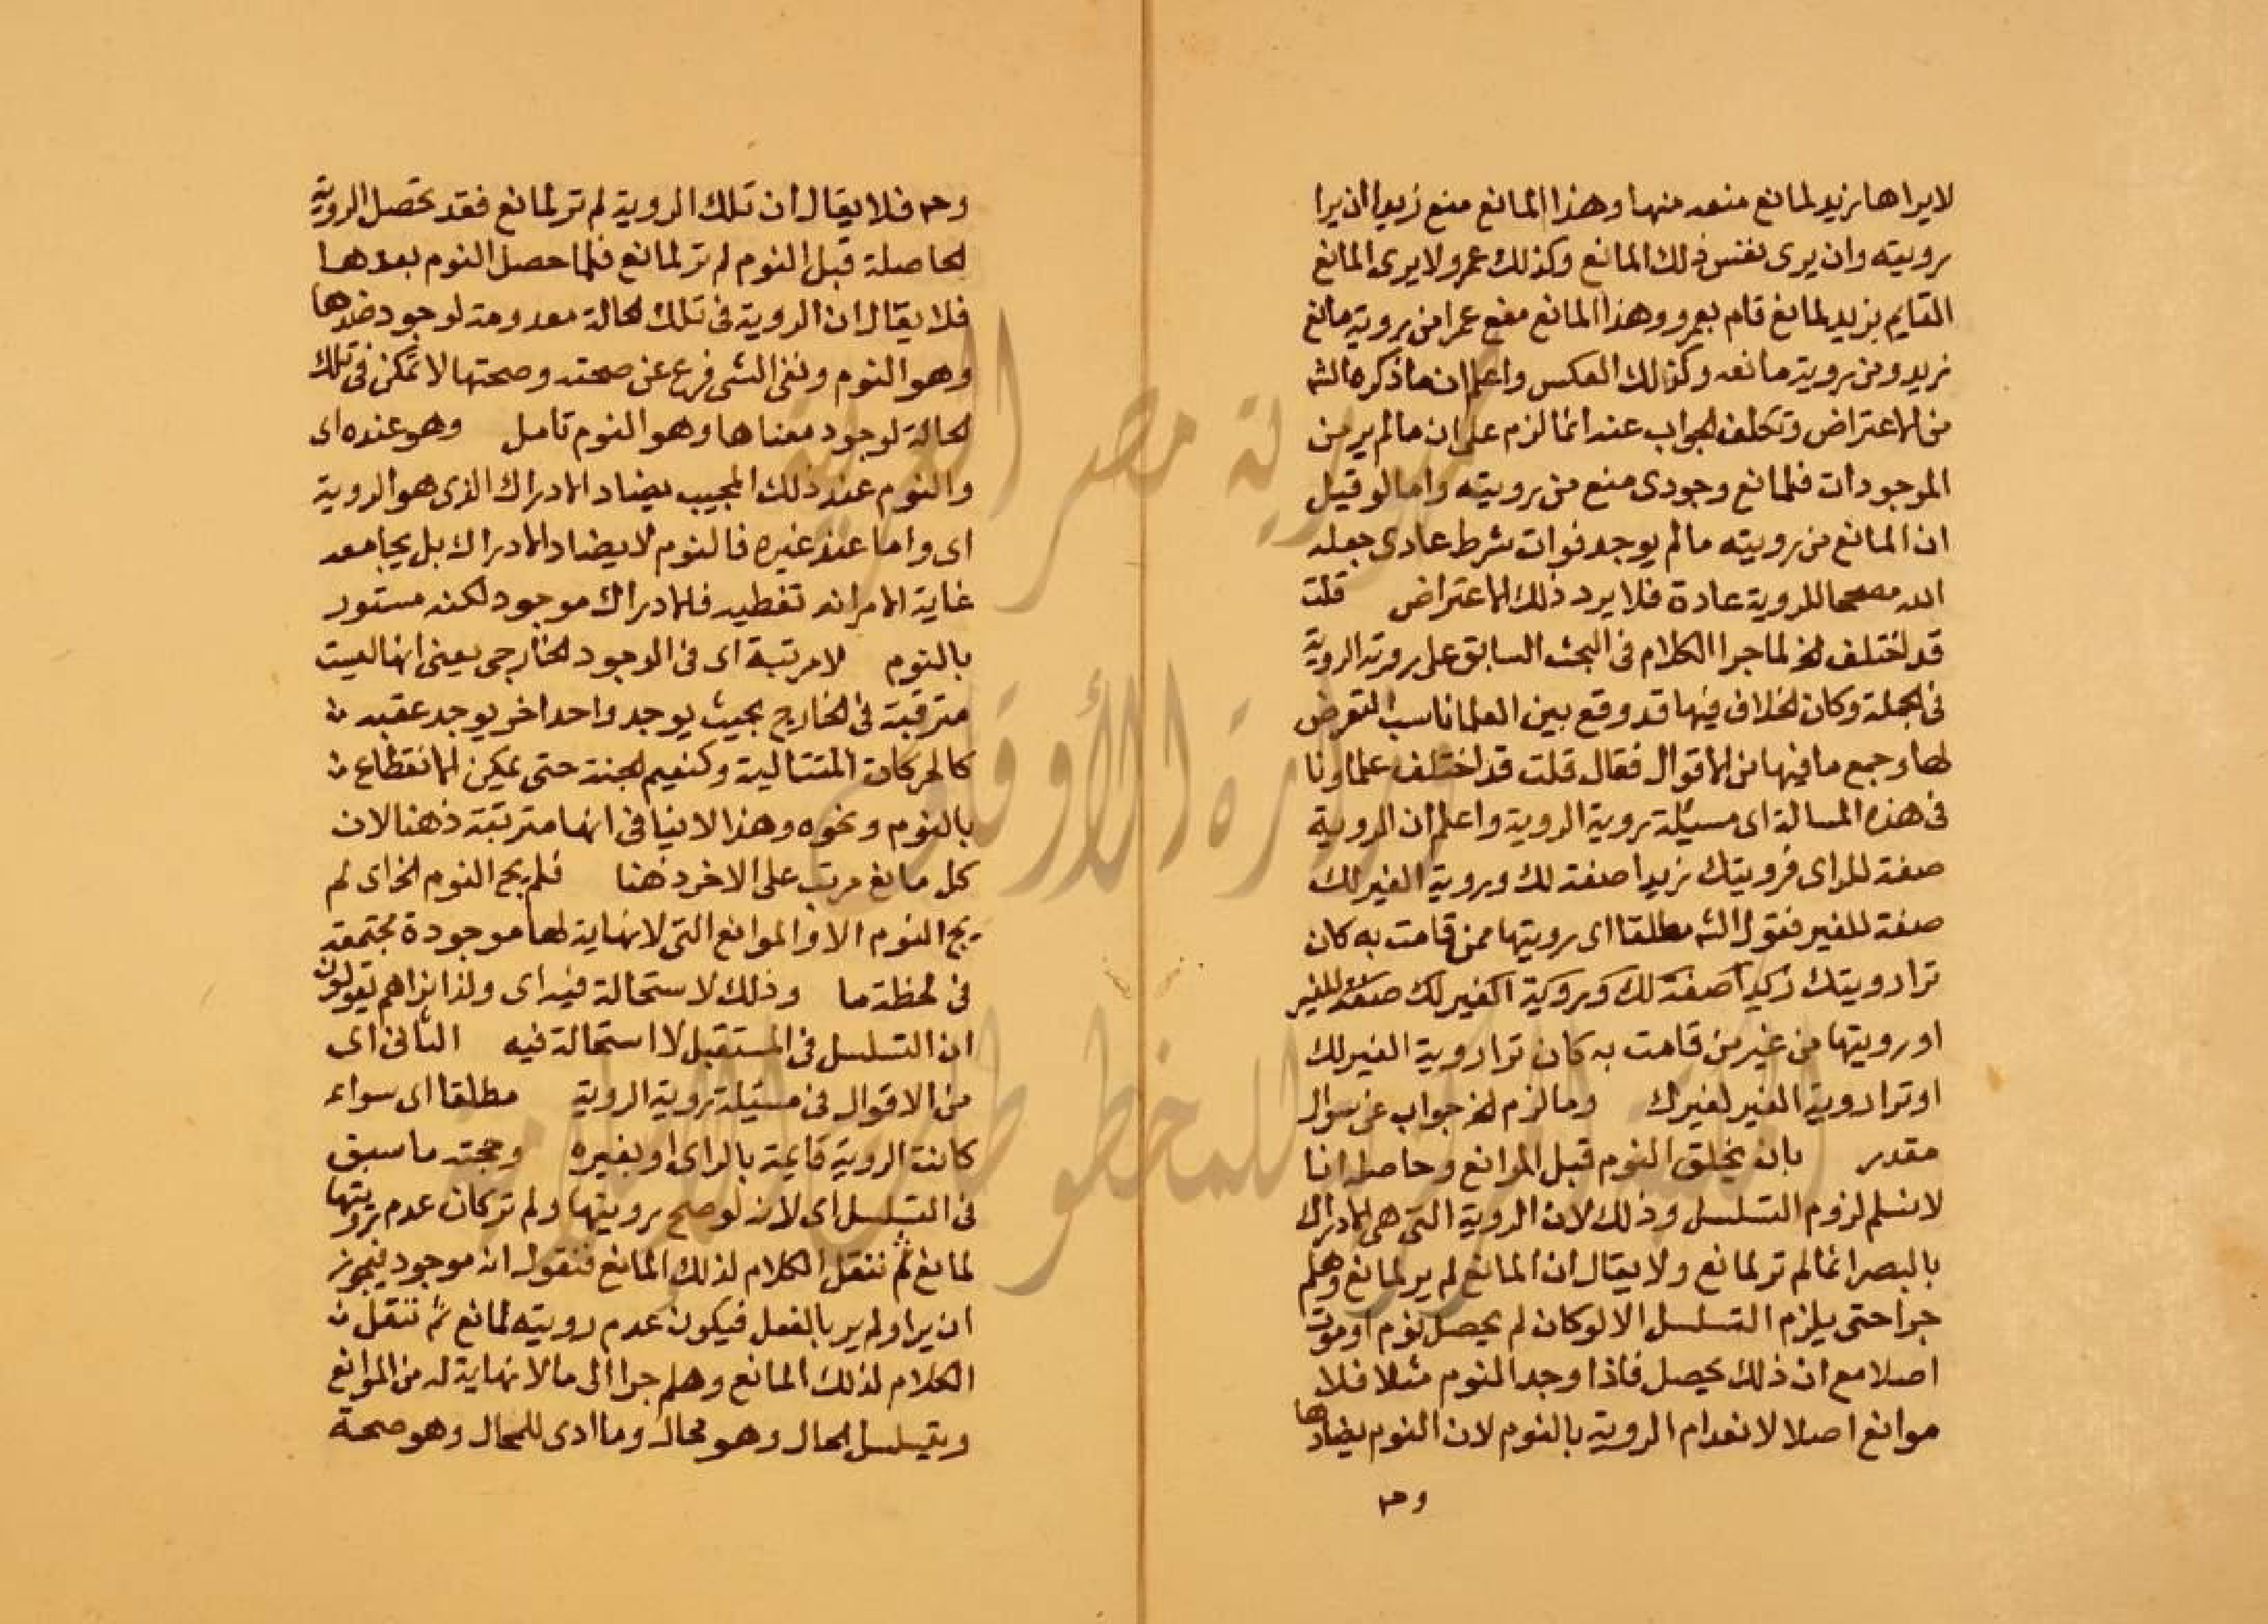 لا يراها زيد لمانع منعه منها وهذا المانع منع زيدا ان يرا
رويته وان يرى نفس ذلك المانع وكذلك عمرو لا يرى المانع
القايم بزيد لمانع قام بعمرو وهذا المانع منع عمرا من روية مانع
زيد ومن روية مانعه وكذلك العكس واعلم ان ما ذكره الشـ
من الاعتراض وتكلف الجواب عنه انما لزم على ان ما لم ير من
الموجودات فلمانع وجودى منع من رويته واما لو قيل
ان المانع من رويته ما لم يوجد فوات شرط عادى جعله
الله مصححا للروية عادة فلا يرد ذلك الاعتراض قلت
قد اختلف الخ لما جرا الكلام فى البحث السابق على روية الروية
فى الجملة وكان الخلاف فيها قد وقع بين العلما ناسب التعرض
لها وجمع ما فيها من الاقوال فقال قلت قد اختلف علماونا
فى هذه المسالة اى مسئلة روية الروية واعلم ان الروية
صفة للراى فرويتك زيدا صفة لك وروية الغير لك
صفة للغير فقول الشـ مطلقا اى رويتها ممن قامت به كان
ترا رويتك زيدا صفة لك وروية الغير لك صفة للغير
او رويتها من غير من قامت به كان ترا روية الغير لك
او ترا روية الغير لغيرك وما لزم الخ جواب عن سوال
مقدر بان يخلق النوم قبل الموانع وحاصله انا
لا نسلم لزوم التسلسل وذلك لان الروية التى هى الادراك
بالبصر انما لم تر لمانع ولا يقال ان المانع لم ير لمانع وهلم
جرا حتى يلزم التسلسل الا لو كان لم يحصل نوم او موت
اصلا مع ان ذلك يحصل فاذا وجد النوم مثلا فلا
موانع اصلا لانعدام الروية بالنوم لان النوم يضادها
وح
وح فلا يقال ان تلك الروية لم تر لمانع فقد تحصل الروية
الحاصلة قبل النوم لم تر لمانع فلما حصل النوم بعدها
فلا يقال ان الروية فى تلك الحالة معدومة لوجود ضدها
وهو النوم ونفى الشى فرع عن صحته وصحتها لا تمكن فى تلك
الحالة لوجود معناها وهو النوم تامل وهو عنده اى
والنوم عند ذلك المجيب يضاد الادراك الذى هو الروية
اى واما عند غيره فالنوم لا يضاد الادراك بل يجامعه
غاية الامر انه تغطيه فالادراك موجود لكنه مستور
بالنوم لا مرتبة اى فى الوجود الخارجى يعنى انها ليست
مترقبة فى الخارج بحيث يوجد واحد اخر يوجد عقبه
كالحركات المتتالية وكنعيم الجنة حتى يمكن الانقطاع
بالنوم ونحوه وهذا لا ينافى انها مترتبة ذهنا لان
كل مانع مرتب على الاخر ذهنا فلم يج النوم الخ اى لم
يج النوم الا والموانع التى لا نهاية لها موجودة مجتمعة
فى لحظة ما وذلك لا ستحالة فيه اى ولذا نراهم يقولون
ان التسلسل فى المستقبل لا استحالة فيه الثانى اى
من الاقوال فى مسئلة روية الروية مطلقا اى سواء
كانت الروية قايمة بالراى او بغيره وحجته ما سبق
فى التسلسل اى لانه لو صح رويتها ولم تر كان عدم رويتها
لمانع ثم ننقل الكلام لذلك المانع فنقول انه موجود فيجوز
ان يرا ولم ير بالفعل فيكون عدم رويته لمانع ثم ننقل
الكلام لذلك المانع وهلم جرا الى ما لا نهاية له من الموانع
ويتسلسل الحال وهو محال وما ادى للمحال وهو صحة
جمهورية مصر العربية
وزارة الأوقاف
المكتبة المركزية للمخطوطات الإسلامية